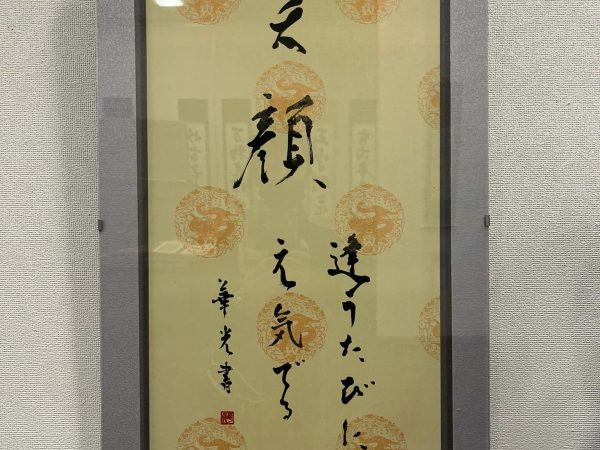 笑顔
逢うたびに
元気でる
華光書